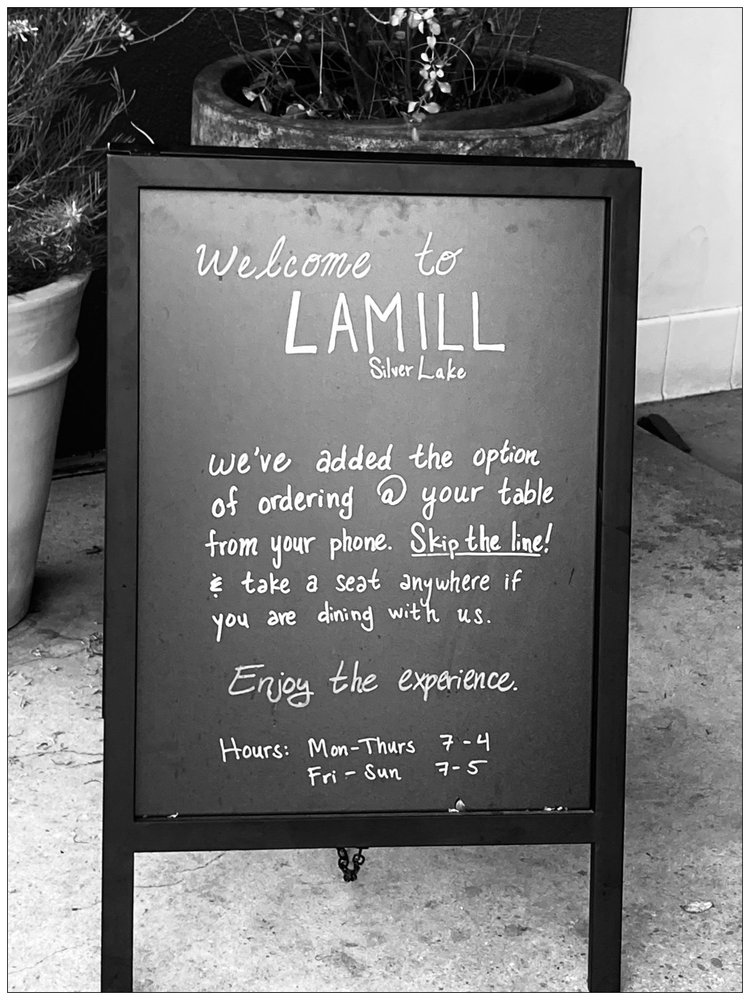 Welcome to
LAMILL
Silver Lake
We've added the option
of ordering @ your table
from your phone. Skip the line!
& take a seat anywhere if
you are dining with us.
Enjoy the experience.
Hours: Mon-Thurs 7-4
Fri-Sun 7-5